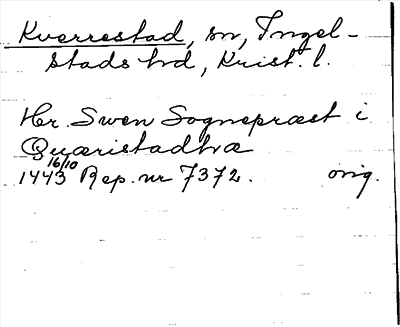 Kverrestad, sn, Ingel-
stads hd, Krist. l.
Hr. Swen Sognepræst i
Quæristadhæ
16/10
1443 Rep. nr 7372. orig.